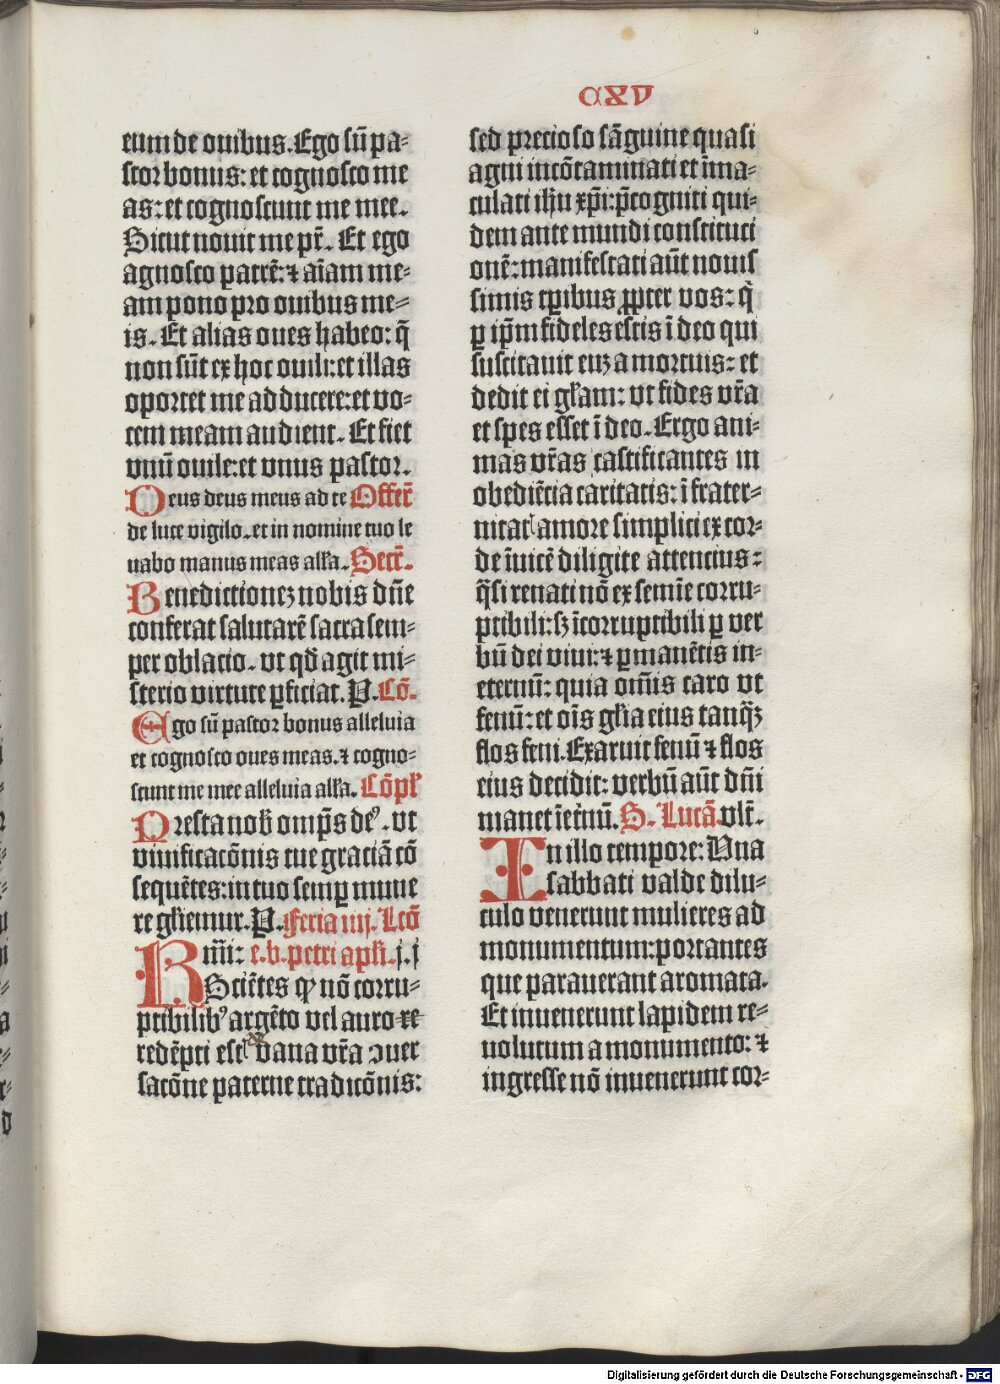 CXV
eum de ouibus. Ego sū pa⸗
stor bonus: et cognosco me
as: et cognoscunt me mee.
Sicut nouit me pr̄. Et ego
agnosco patrē: ⁊ aīam me⸗
am pono pro ouibus me⸗
is. Et alias oues habeo: q̄
non sūt ex hoc ouili: et illas
oportet me adducere: et vo⸗
cem meam audient. Et fiet
vnū ouile: et vnus pastor.
Deus deus meus ad te Offer̄
de luce vigilo. et in nomine tuo le
uabo manus meas alła. Secr̄.
Benedictionez nobis dn̄e
conferat salutarē sacra sem⸗
per oblacio. vt qd̄ agit mi⸗
sterio virture ꝑficiat. P. Cō.
Ego sū pastor bonus alleluia
et cognosco oues meas. ⁊ cogno⸗
scunt me mee alleluia alła. Cōpł
Presta nob̄ omp̄s deꝰ. vt
viuificacōnis tue graciā cō
sequētes: in tuo semꝑ mune
re głiemur. P. Feria iiij. Lcō
Rm̄i: e. b. petri apłi. j. j
Sciētes ꝙ nō corru⸗
ptibilibꝰ argēto vel auro re
redēpti estꝭ de vana vr̄a ɔuer
sacōne paterne tradicōnis:
sed precioso sāguine quasi
agni incōtaminati et īma⸗
culati ih̄u xp̄i: p̄cogniti qui⸗
dem ante mundi constituci
onē: manifestati aūt nouis
simis tꝑibus ꝓpter vos: q̄
ꝑ ip̄m fideles estis ī deo qui
suscitauit euz a mortuis: et
dedit ei głam: vt fides vr̄a
et spes esset ī deo. Ergo ani⸗
mas vr̄as castificantes in
obediēcia caritatis: ī frater⸗
nitatꝭ amore simplici ex cor⸗
de īuicē diligite attencius:
q̄si renati nō ex semīe corru⸗
ptibili: sꝫ īcorruptibili ꝑ ver
bū dei viui: ⁊ ꝑmanētis in⸗
eternū: quia om̄is caro vt
fenū: et oīs głia eius tanqꝫ
flos feni. Exaruit fenū ⁊ flos
eius decidit: verbū aūt dn̄i
manet īetnū. S. Lucā. vlt̄.
In illo tempore: Vna
sabbati valde dilu⸗
culo venerunt mulieres ad
monumentum: portantes
que parauerant aromata.
Et inuenerunt lapidem re⸗
uolutum a monumento: ⁊
ingresse nō inuenerunt cor⸗
Digitalisierung gefördert durch die Deutsche Forschungsgemeinschaft - DFG